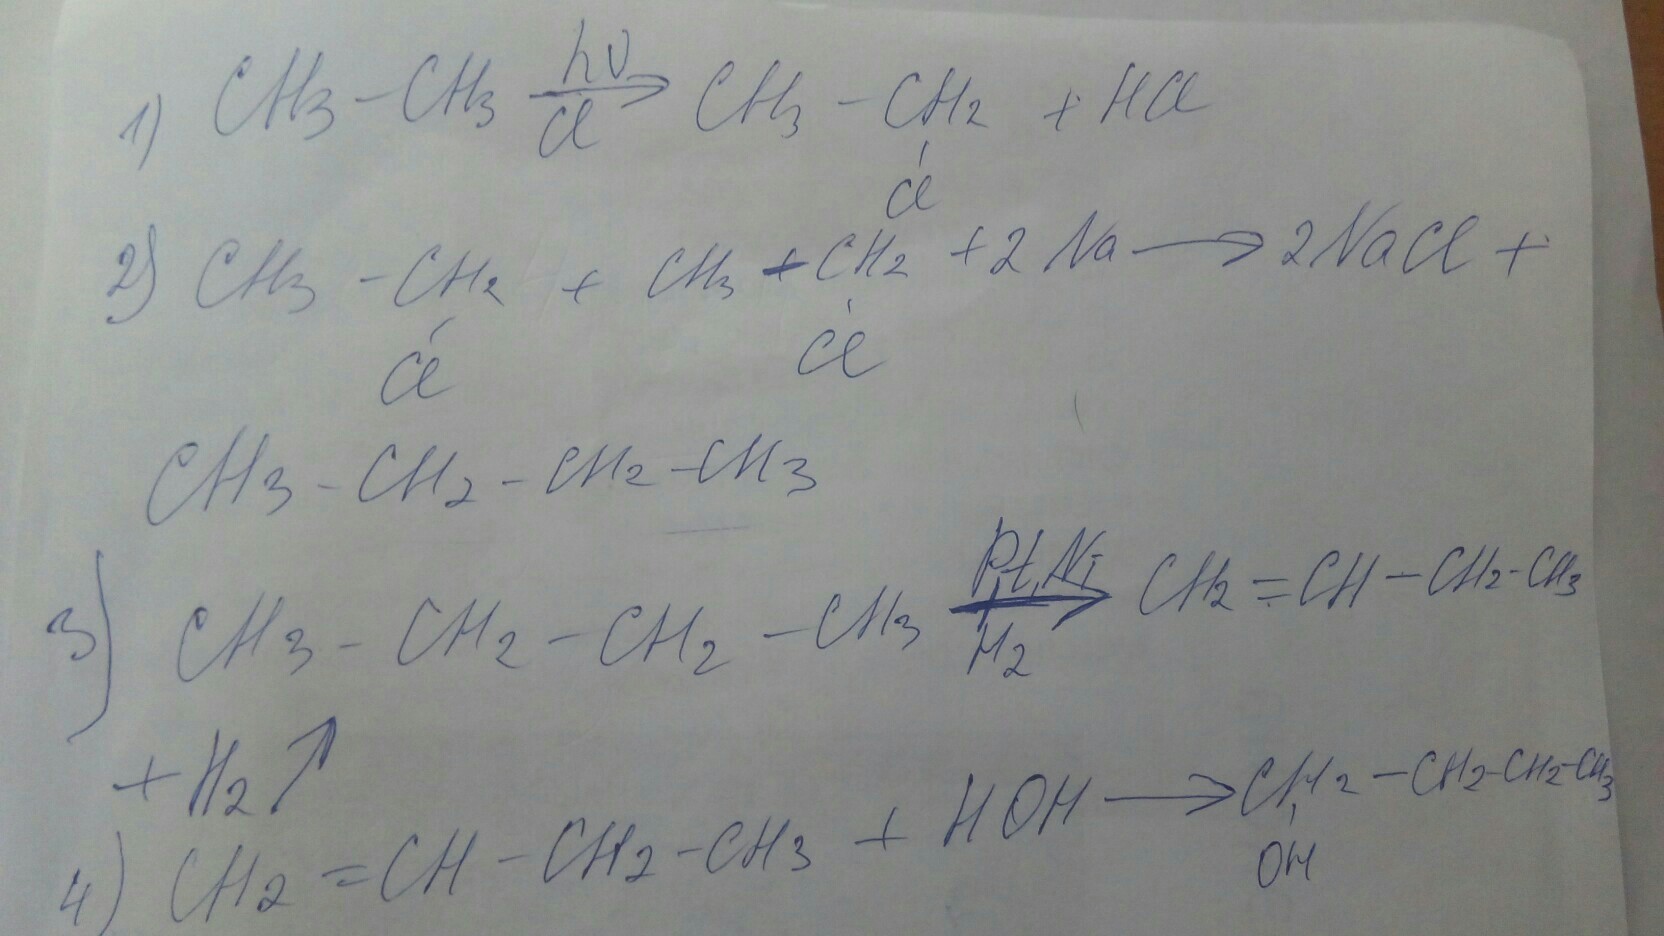 1) CH3 - CH3 hν → Cl CH3 - CH2 + HCl
Cl
2) CH3 - CH2 + CH3 + CH2 + 2 Na → 2NaCl +
Cl Cl
CH3 - CH2 - CH2 - CH3
3) CH3 - CH2 - CH2 - CH3 Pt, Ni → H2 CH2 = CH - CH2 - CH3
+ H2 ↑
4) CH2 = CH - CH2 - CH3 + HOH → CH2 - CH2 - CH2 - CH3
OH